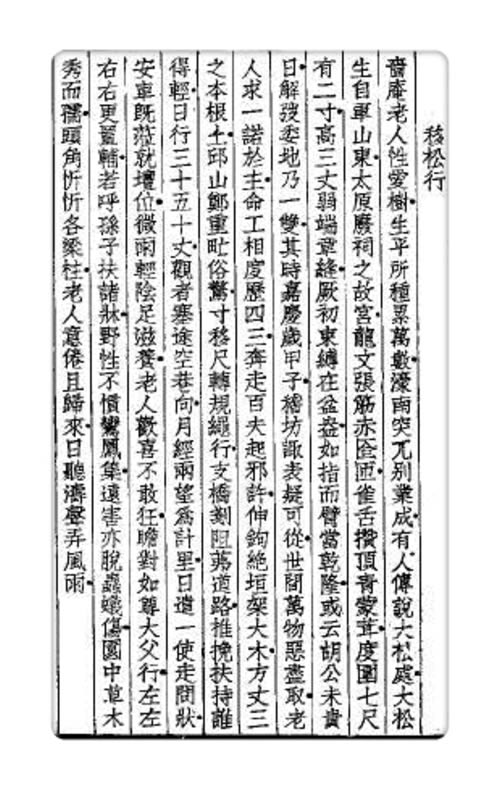 移松行
嗇庵老人性愛樹生平所種累萬數濠南突兀别業成有人傳說大松處大松
生自軍山東太原廢祠之故宮龍文張筋赤金匝雀舌攢頂青蒙茸度圍七尺
有二寸高三丈弱端章縫厥初束縛在盆盎如指而臂當乾隆或云胡公未貴
日解發委地乃一雙其時嘉慶歲甲子橋坊諏表疑可從世間萬物惡盡取老
人求一諾於主命工相度歷四三奔走百夫起邪許伸鉤絶垣架大木方丈三
之本根土邱山鄭重甿俗驚寸移尺轉規繩行支橋剗阻蕩道路推挽扶持誰
得輕日行三十五十丈觀者塞途空巷向月經兩望爲計里日遣一使走問狀
安車既蒞就壇位微雨輕陰足滋養老人歡喜不敢狂瞻對如尊大父行左左
右右更置輔若呼孫子扶諸牀野性不慣鸞鳳集遠害亦脫蟲蟻傷園中草木
秀而孺頭角忻忻各梁柱老人意倦且歸來日聽濤聲弄風雨